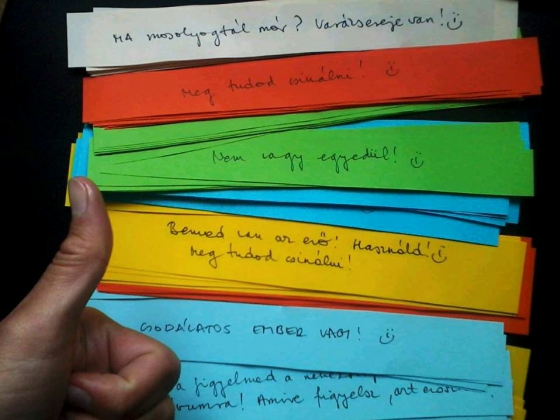 MA mosolyogtál már? Varázsereje van!
Meg tudod csinálni!
Nem vagy egyedül!
Benned van az erő! Használd!
Meg tudod csinálni!
CSODÁLATOS EMBER VAGY!
a figyelmed a
Amire figyelsz, azt